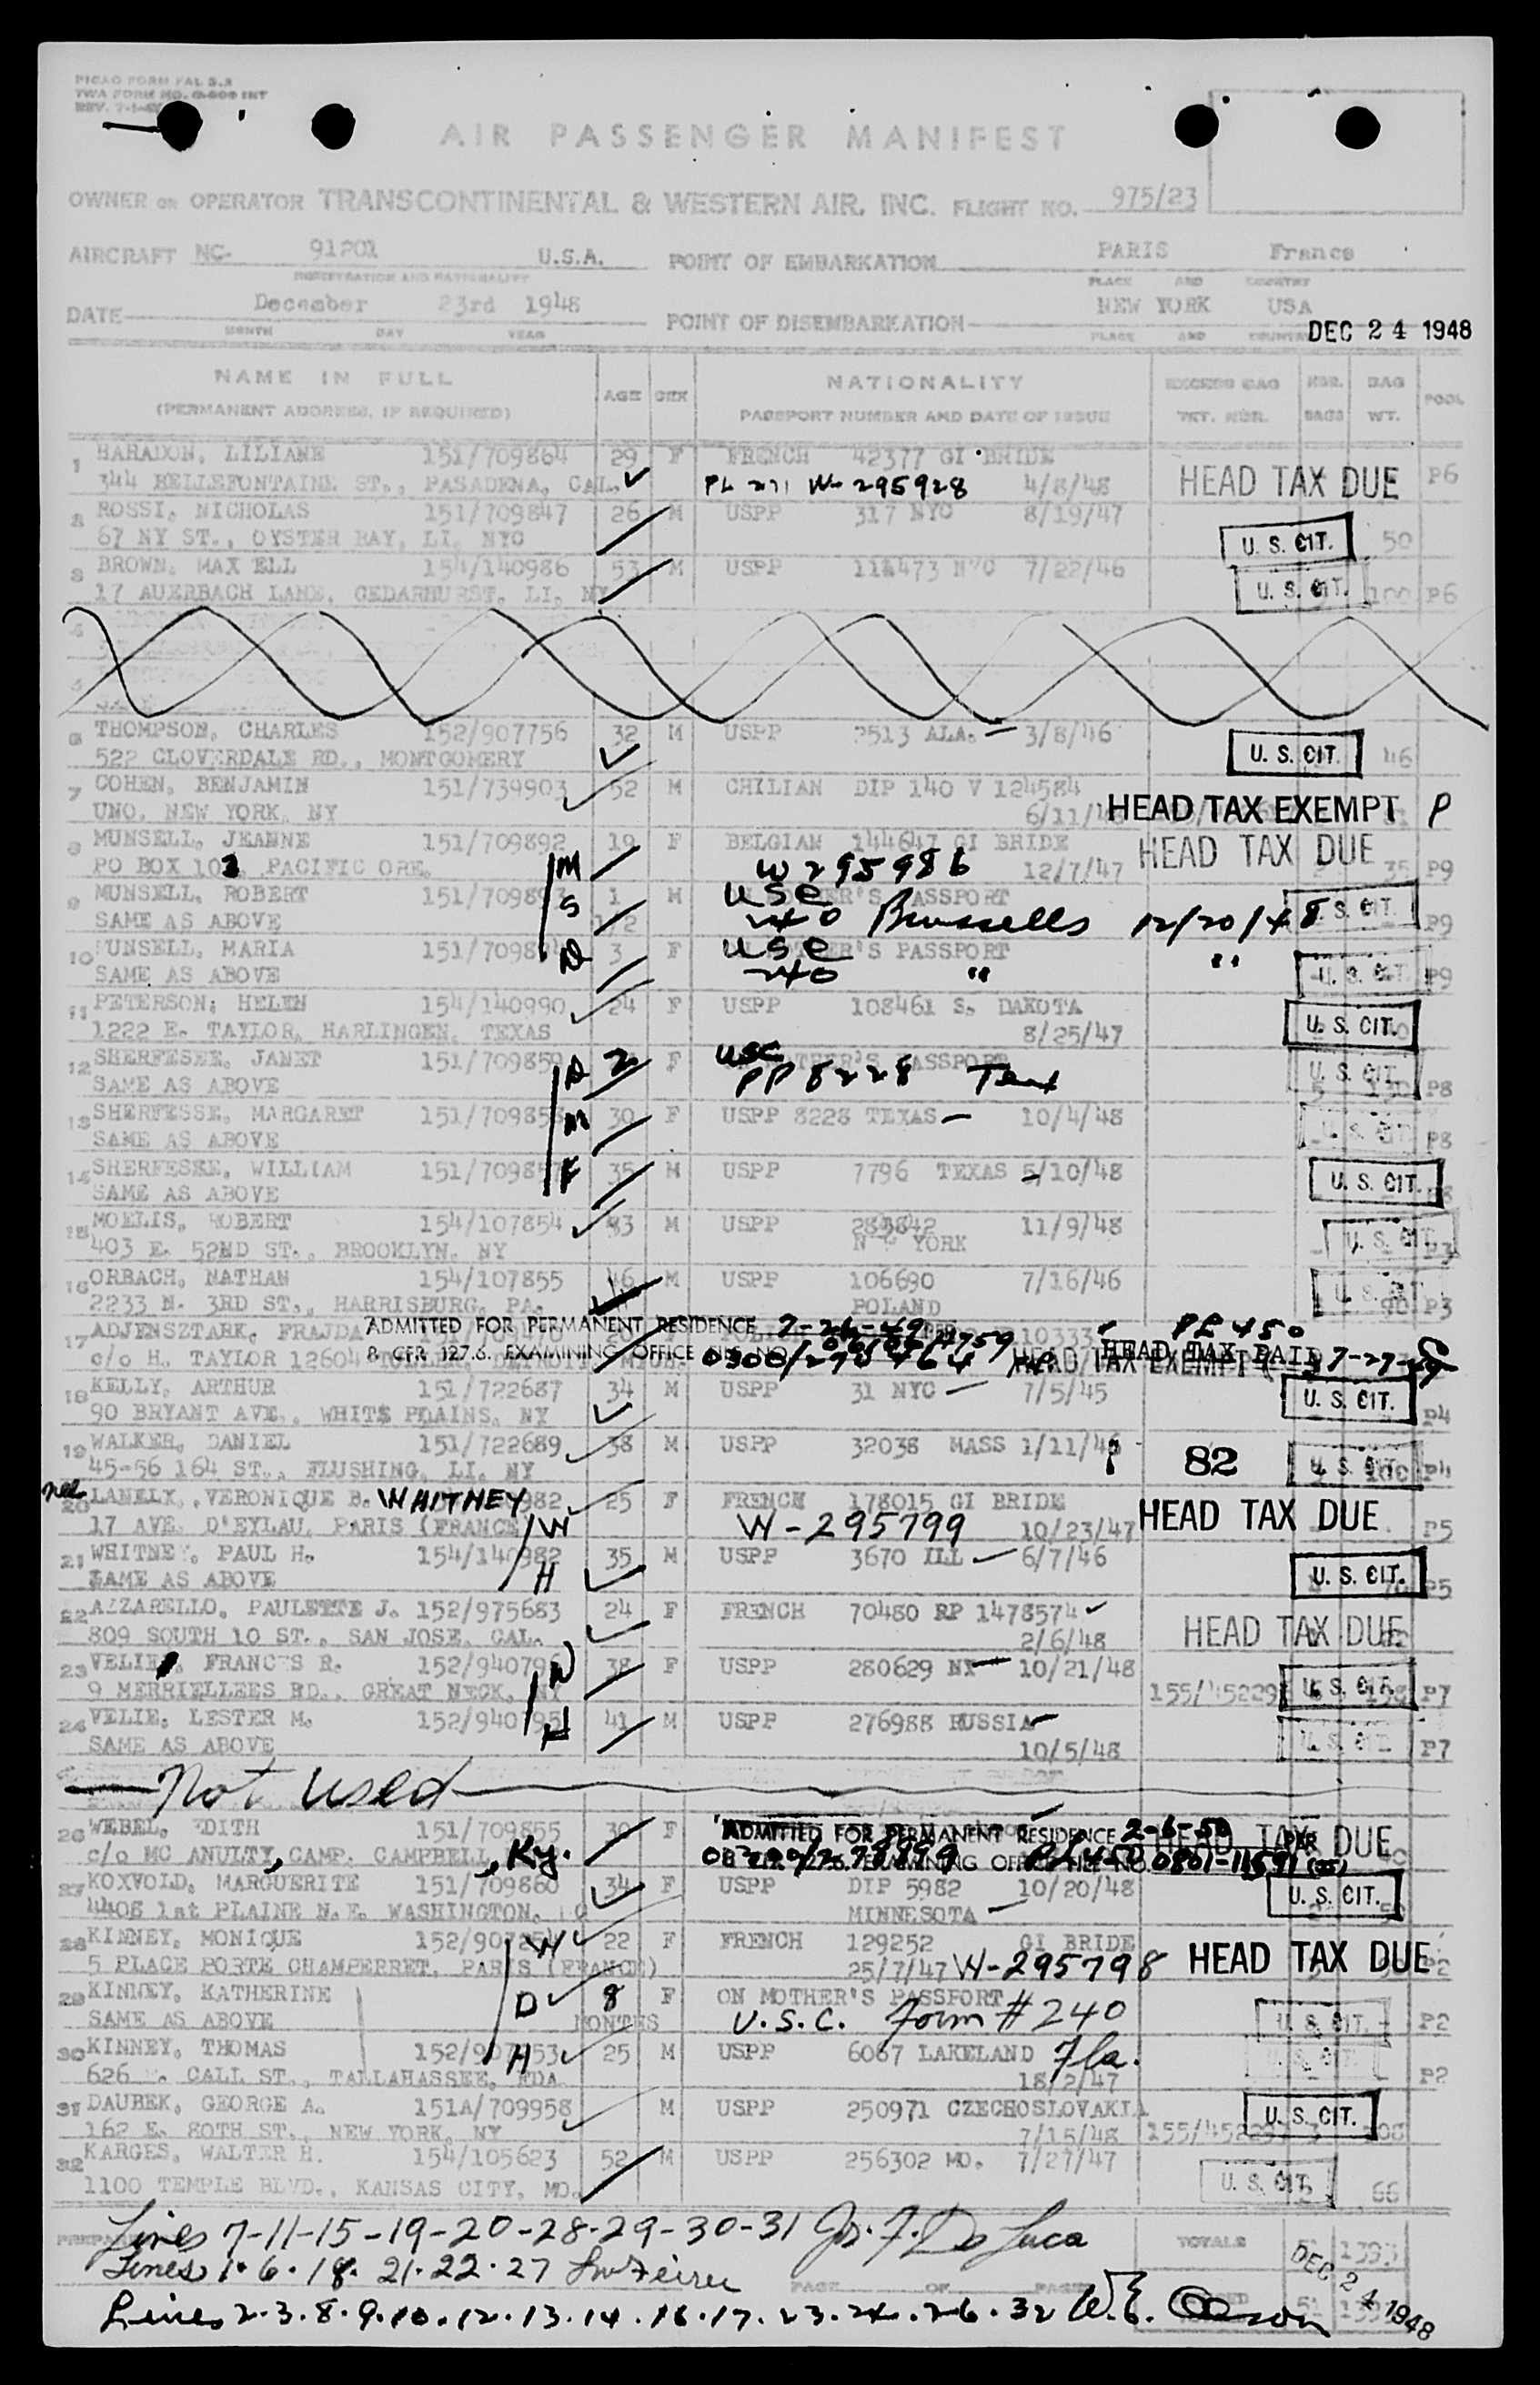 PICAO FORM FAL 5.3
TWA FORM NO. INT
REV.
AIR PASSENGER MANIFEST
OWNER OR OPERATOR TRANSCONTINENTAL & WESTERN AIR, INC. FLIGHT NO. 975/23
AIRCRAFT NC- 91201 U.S.A. POINT OF EMBARKATION PARIS France
REGISTRATION AND NATIONALITY PLACE AND COUNTRY
DATE December 23rd 1948 POINT OF DISEMBARKATION NEW YORK USA
MONTH DAY YEAR PLACE AND COUNTRY
DEC 24 1948
NAME IN FULL AGE SEX NATIONALITY EXCESS BAG NBR. BAG POOL
(PERMANENT ADDRESS, IF REQUIRED) PASSPORT NUMBER AND DATE OF ISSUE TKT. NBR. BAGS WT.
1 HARADON, LILIANE 151/709864 29 F FRENCH 42377 GI BRIDE
344 BELLEFONTAINE ST., PASADENA, CAL. PL 271 W-295928 4/8/48 HEAD TAX DUE P6
2 ROSSI, NICHOLAS 151/709847 26 M USPP 317 NYC 8/19/47
67 NY ST., OYSTER BAY, LI, NYC U. S. CIT. 50
3 BROWN, MAX ELL 154/140986 53 M USPP 114473 NYC 7/22/46
17 AUERBACH LANE, CEDARHURST, LI, NY U. S. CIT. 100 P6
6 THOMPSON, CHARLES 152/907756 32 M USPP 2513 ALA. 3/8/46
522 CLOVERDALE RD., MONTGOMERY U. S. CIT. 46
7 COHEN, BENJAMIN 151/739903 52 M CHILIAN DIP 140 V 124584
UNO, NEW YORK, NY 6/11/48 HEAD TAX EXEMPT P
8 MUNSELL, JEANNE 151/709892 19 F BELGIAN 144647 GI BRIDE
PO BOX 103, PACIFIC ORE. M W 295986 12/7/47 HEAD TAX DUE 35 P9
9 MUNSELL, ROBERT 151/709893 1 M MOTHER'S PASSPORT
SAME AS ABOVE S 1/2 USC 240 Brussells 12/20/48 U. S. CIT. P9
10 MUNSELL, MARIA 151/709894 3 F MOTHER'S PASSPORT
SAME AS ABOVE D USC 240 " " U. S. CIT. P9
11 PETERSON, HELEN 154/140990 24 F USPP 108461 S. DAKOTA
1222 E. TAYLOR, HARLINGEN, TEXAS 8/25/47 U. S. CIT.
12 SHERFESEE, JANET 151/709859 D 2 F USC MOTHER'S PASSPORT
SAME AS ABOVE PP 8228 Tex U. S. CIT. P8
13 SHERFESSE, MARGARET 151/709858 M 30 F USPP 8228 TEXAS 10/4/48
SAME AS ABOVE U. S. CIT. P8
14 SHERFESEE, WILLIAM 151/709857 F 35 M USPP 7796 TEXAS 5/10/48
SAME AS ABOVE U. S. CIT. P8
15 MOELIS, ROBERT 154/107854 M USPP 11/9/48
403 E. 52ND ST., BROOKLYN, NY NEW YORK U. S. CIT. P3
16 ORBACH, NATHAN 154/107855 46 M USPP 106690 7/16/46
2233 N. 3RD ST., HARRISBURG, PA. POLAND U. S. CIT. 90 P3
17 ADJENSZTARK, FRAJDA ADMITTED FOR PERMANENT RESIDENCE 7-26-49 PER PL 450
c/o H. TAYLOR 12604 DETROIT MICH. 8 CFR 127.6. EXAMINING OFFICE FILE NO. 0300/278464 HEAD TAX EXEMPT HEAD TAX PAID 7-27-49
18 KELLY, ARTHUR 151/722687 34 M USPP 31 NYC 7/5/45
90 BRYANT AVE., WHITE PLAINS, NY U. S. CIT. P4
19 WALKER, DANIEL 151/722689 38 M USPP 32038 MASS 1/11/46
45-56 164 ST., FLUSHING, LI, NY 82 U. S. CIT. 100 P4
nee 20 LANELY, VERONIQUE B. WHITNEY 982 25 F FRENCH 178015 GI BRIDE
17 AVE. D'EYLAU, PARIS (FRANCE) W W-295799 10/23/47 HEAD TAX DUE P5
21 WHITNEY, PAUL H. 154/140982 35 M USPP 3670 ILL 6/7/46
SAME AS ABOVE H U. S. CIT. P5
22 AZZARELLO, PAULETTE J. 152/975683 24 F FRENCH 70480 RP 1478574
809 SOUTH 10 ST., SAN JOSE, CAL. 2/6/48 HEAD TAX DUE
23 VELIE, FRANCES R. 152/940796 W 38 F USPP 280629 NY 10/21/48
9 MERRIELLEES RD., GREAT NECK, NY 155/452291 U. S. CIT. 158 P7
24 VELIE, LESTER M. 152/940795 H 41 M USPP 276988 RUSSIA
SAME AS ABOVE 10/5/48 U. S. CIT. P7
Not used
26 WEBEL, EDITH 151/709855 30 F ADMITTED FOR PERMANENT RESIDENCE 2-6-50 PER HEAD TAX DUE
c/o MC ANULTY, CAMP. CAMPBELL, Ky. 8 CFR 127.6. EXAMINING OFFICE FILE NO.
27 KOXVOLD, MARGUERITE 151/709860 34 F USPP DIP 5982 10/20/48
4408 1st PLAINE N.E. WASHINGTON, DC MINNESOTA U. S. CIT.
28 KINNEY, MONIQUE W 22 F FRENCH 129252 GI BRIDE
5 PLACE PORTE CHAMPERRET, PARIS (FRANCE) 25/7/47 W-295798 HEAD TAX DUE P2
29 KINNEY, KATHERINE D 8 F ON MOTHER'S PASSPORT
SAME AS ABOVE MONTHS U.S.C. Form #240 U. S. CIT. P2
30 KINNEY, THOMAS H 25 M USPP 6067 LAKELAND Fla.
626 W. CALL ST., TALLAHASSEE, FDA 18/2/47 U. S. CIT. P2
31 DAUBEK, GEORGE A. 151A/709958 M USPP 250971 CZECHOSLOVAKIA
162 E. 80TH ST., NEW YORK, NY 7/15/48 U. S. CIT.
32 KARGES, WALTER H. 154/105623 52 M USPP 256302 MO. 7/27/47
1100 TEMPLE BLVD., KANSAS CITY, MO. U. S. CIT. 66
Lines 7-11-15-19-20-28-29-30-31 De Luca TOTALS 51 1393
Lines 1.6.18.21.22.27 PAGE OF PAGES DEC 24 1948
Lines 2.3.8.9.10.12.13.14.16.17.23.24.26.32 W.E. Olson